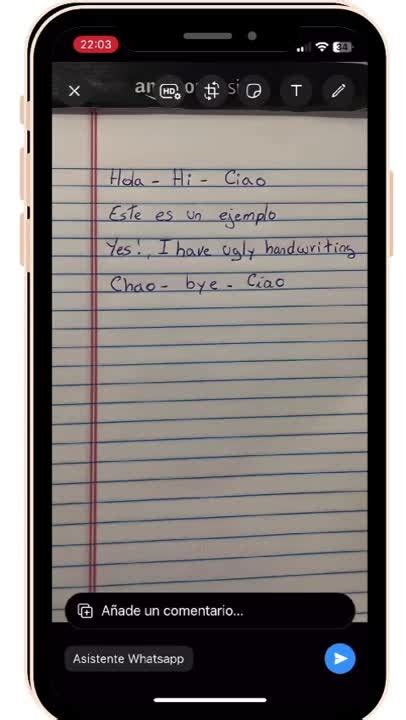 22:03
34
HD T
Hola - Hi - Ciao
Este es un ejemplo
Yes!, I have ugly handwriting
Chao - bye - Ciao
Añade un comentario...
Asistente Whatsapp